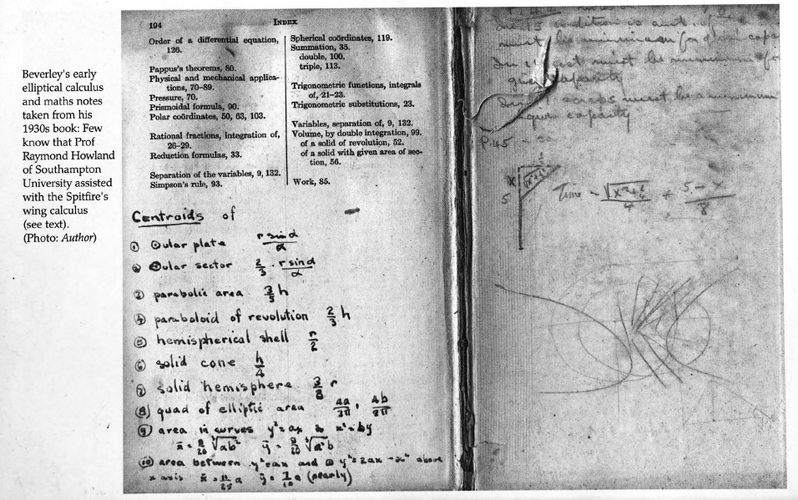 Beverley's early
elliptical calculus
and maths notes
taken from his
1930s book: Few
know that Prof
Raymond Howland
of Southampton
University assisted
with the Spitfire's
wing calculus
(see text).
(Photo: Author)
194 INDEX
Order of a differential equation,
126.
Pappus's theorems, 80.
Physical and mechanical applica-
tions, 70–89.
Pressure, 70.
Prismoidal formula, 90.
Polar coördinates, 50, 63, 103.
Rational fractions, integration of,
26–29.
Reduction formulas, 33.
Separation of the variables, 9, 132.
Simpson's rule, 93.
Spherical coördinates, 119.
Summation, 35.
double, 100.
triple, 113.
Trigonometric functions, integrals
of, 21–23.
Trigonometric substitutions, 23.
Variables, separation of, 9, 132.
Volume, by double integration, 99.
of a solid of revolution, 52.
of a solid with given area of sec-
tion, 56.
Work, 85.
Centroids of
① Oular plate r sin α / α
② Oular sector 2/3 · r sin α / α
③ parabolic area 3/5 h
④ paraboloid of revolution 2/3 h
⑤ hemispherical shell r/2
⑥ solid cone h/4
⑦ solid hemisphere 3/8 r
⑧ quad of elliptic area 4a/3π, 4b/3π
⑨ area in curves y²=ax & x²=by
x̄ = 9/20 ∛ab² ȳ = 9/20 ∛a²b
⑩ area between y²=ax and y²=2ax-x² above
x axis a a (nearly)
condition is
must be minimum for
must be minimum
given capacity
scraps must be a minimum
given capacity
P.45
x
5
Time = √x²+ / 4 + 5-x / 8